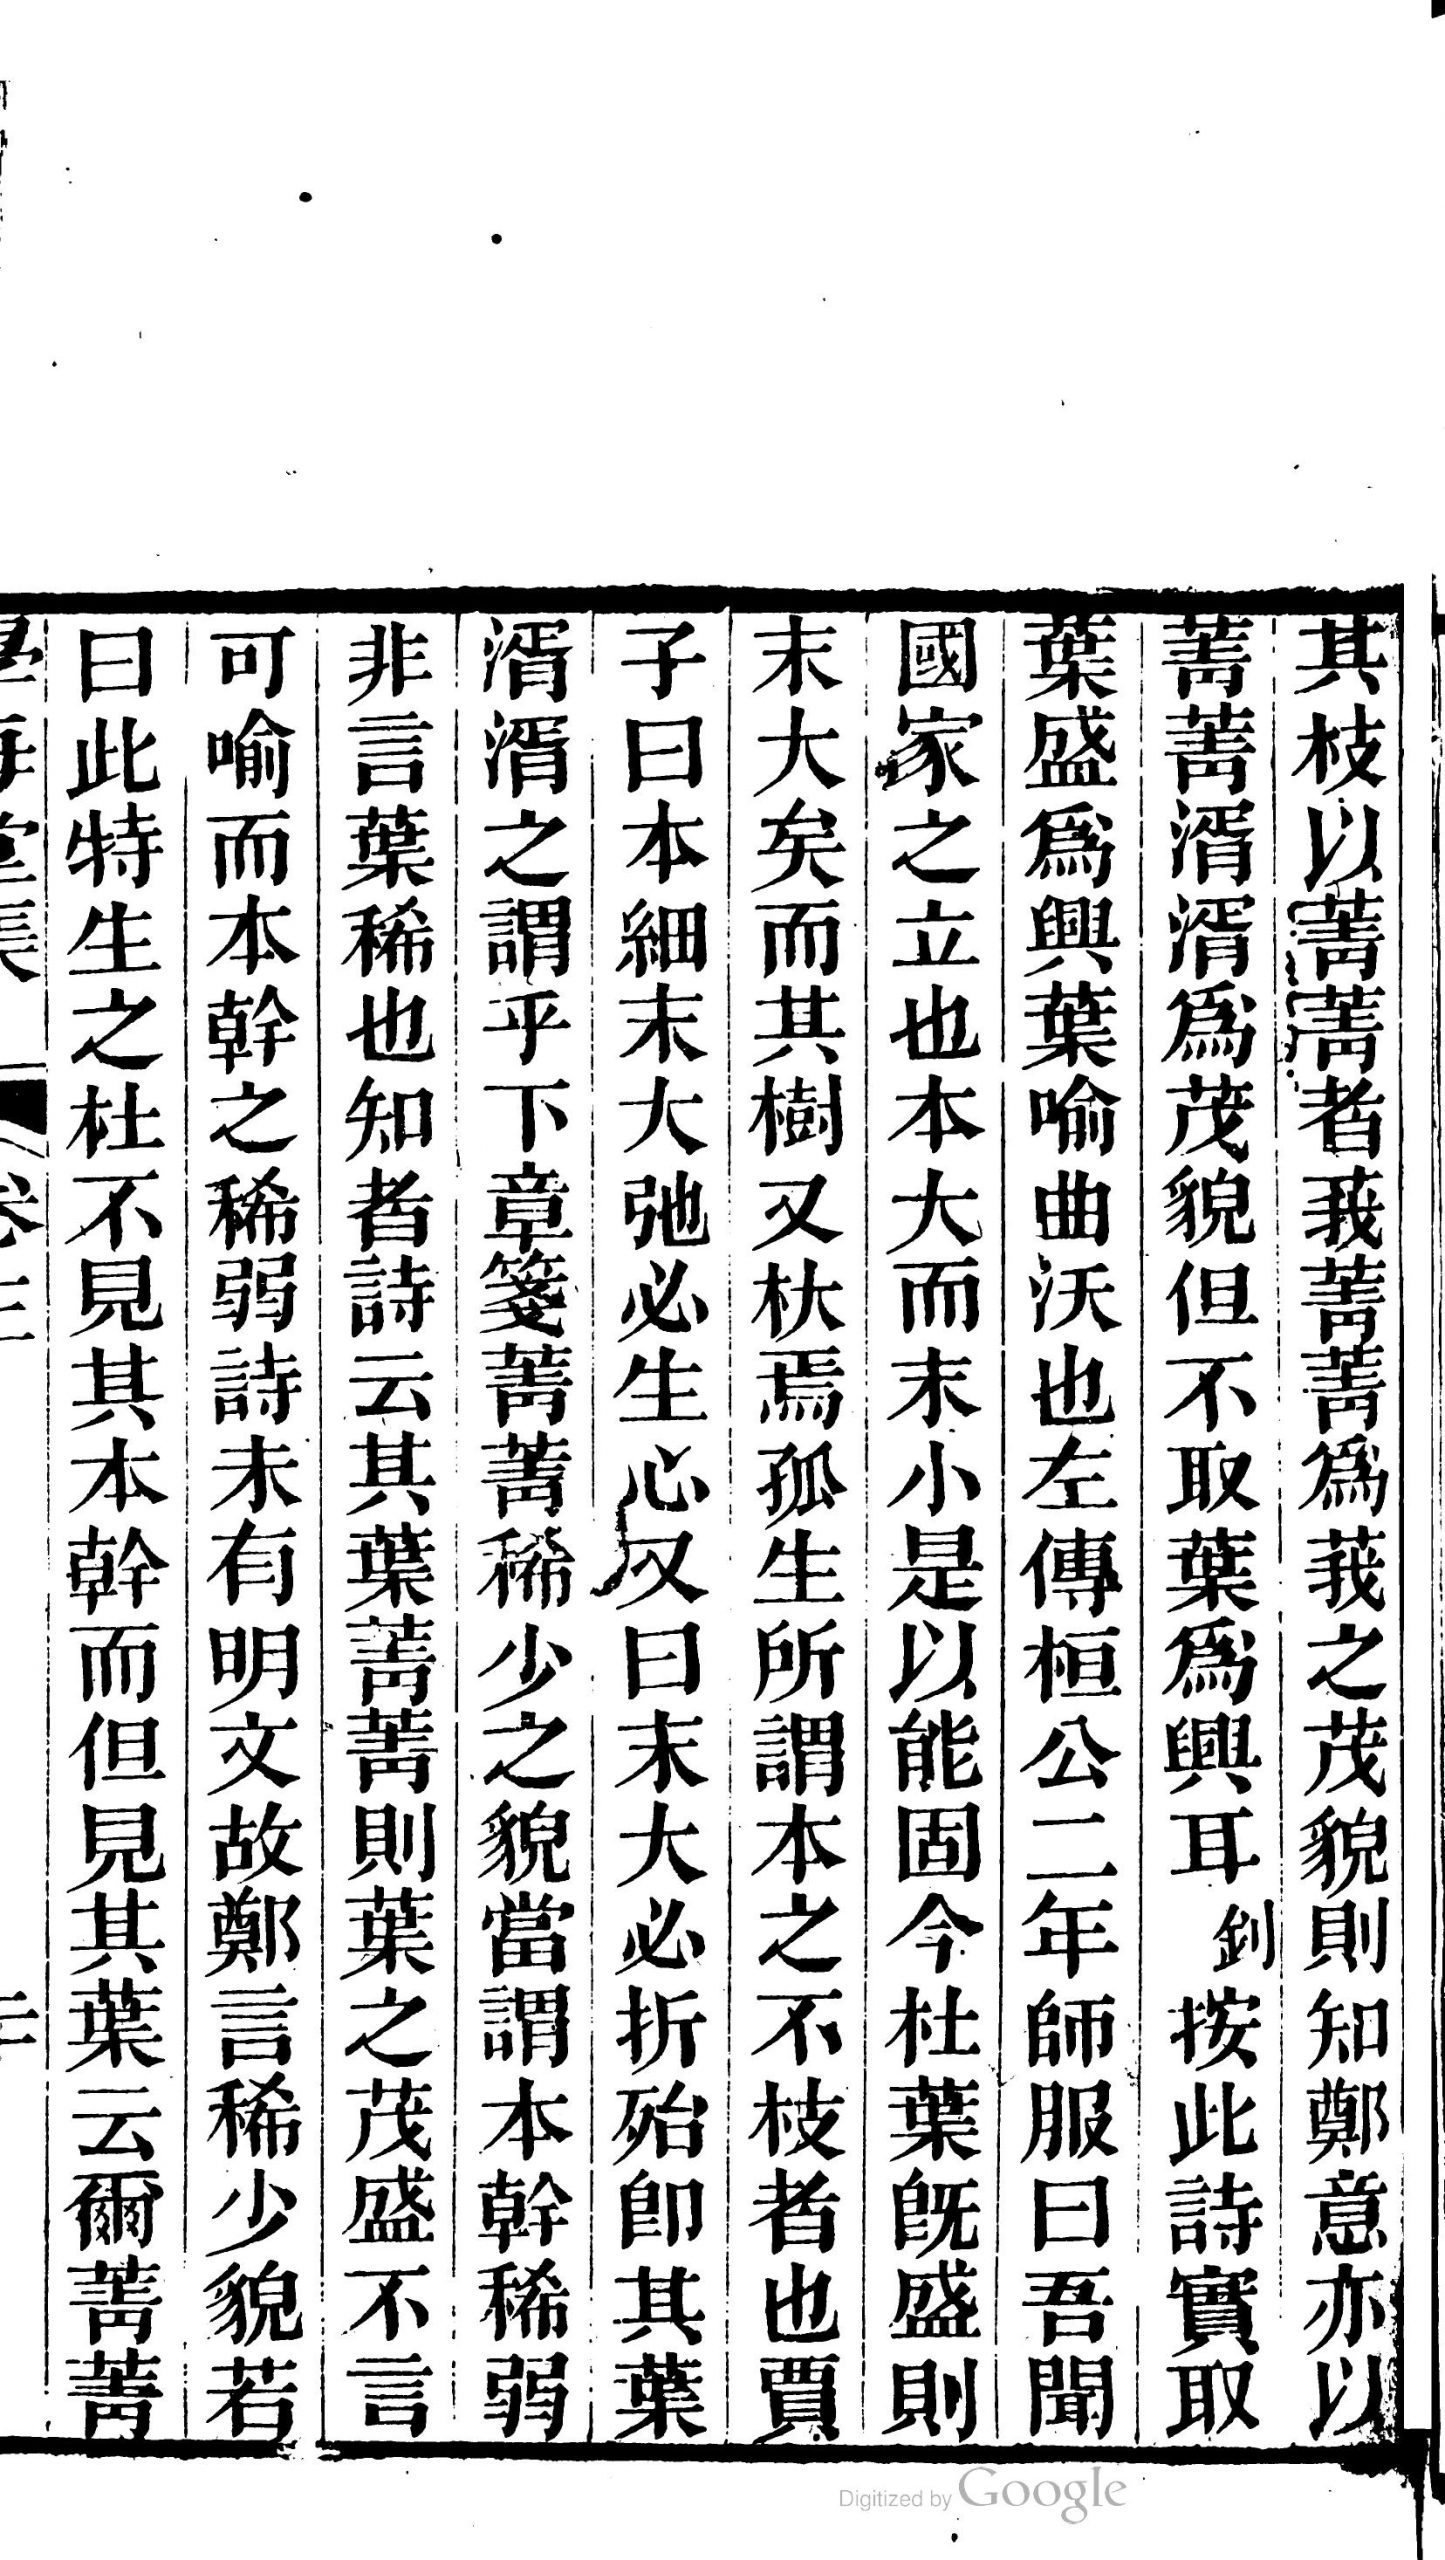 其枝以菁菁者莪菁菁爲莪之茂貌則知鄭意亦以
菁菁湑湑爲茂貌但不取葉爲興耳釗按此詩實取
葉盛爲興葉喻曲沃也左傳桓公二年師服曰吾聞
國家之立也本大而末小是以能固今杜葉旣盛則
末大矣而其樹又杕焉孤生所謂本之不枝者也賈
子曰本細末大弛必生心又曰末大必折殆卽其葉
湑湑之謂乎下章箋菁菁稀少之貌當謂本幹稀弱
非言葉稀也知者詩云其葉菁菁則葉之茂盛不言
可喻而本幹之稀弱詩未有明文故鄭言稀少貌若
曰此特生之杜不見其本幹而但見其葉云爾菁菁
Digitized by Google